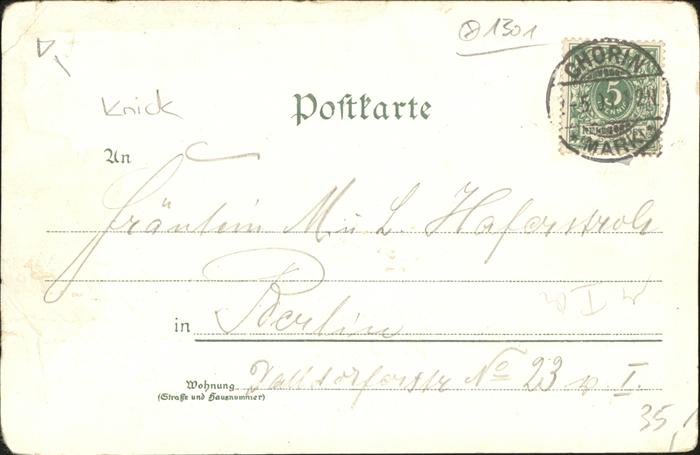 1301
CHORIN
5
* MARK *
Knick
Postkarte
An
Fräulein M u L. Haferstroh
in Berlin
Wohnung
(Straße und Hausnummer)
No 23 v I.
35,